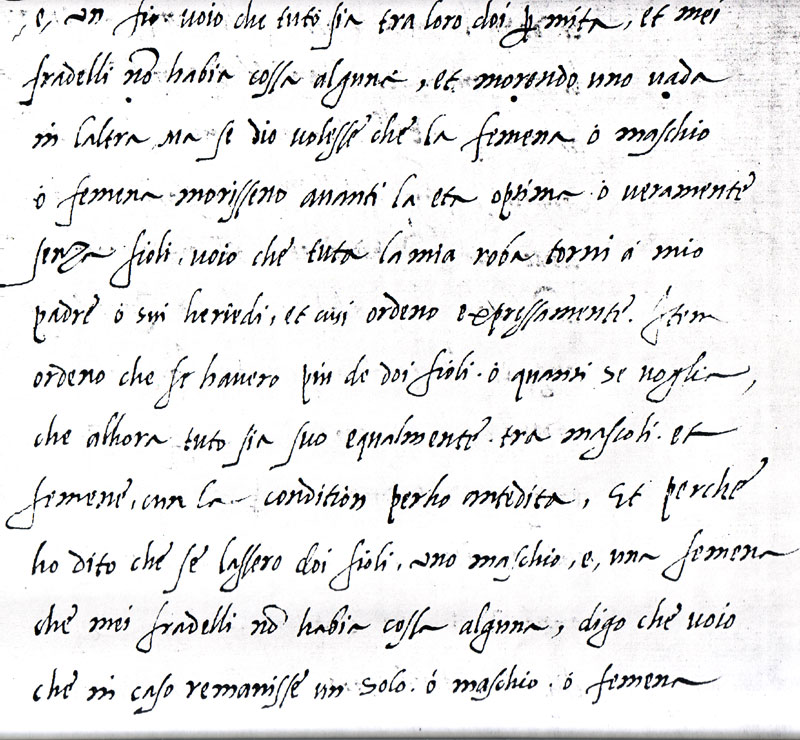 e, un fio voio che tuto sia tra loro doi per mita, et mei
fradelli nō habia cossa alguna, et morendo uno vada
in laltra, Ma se dio volesse che la femena ò maschio
ò femena morisseno avanti la eta optima ò veramente
senza fioli, voio che tuta la mia roba torni à mio
padre ò sui heriedi, et cusi ordeno expressamente. Item
ordeno che se havero piu de doi fioli. ò quanti se voglia,
che alhora tuto sia suo equalmente tra mascoli. et
femene, cun la condition perho antedita, Et perche
ho dito che se lassero doi fioli, uno maschio, e, una femena
che mei fradelli nō habia cossa alguna, digo che voio
che in caso remanisse un solo. ò maschio. ò femena